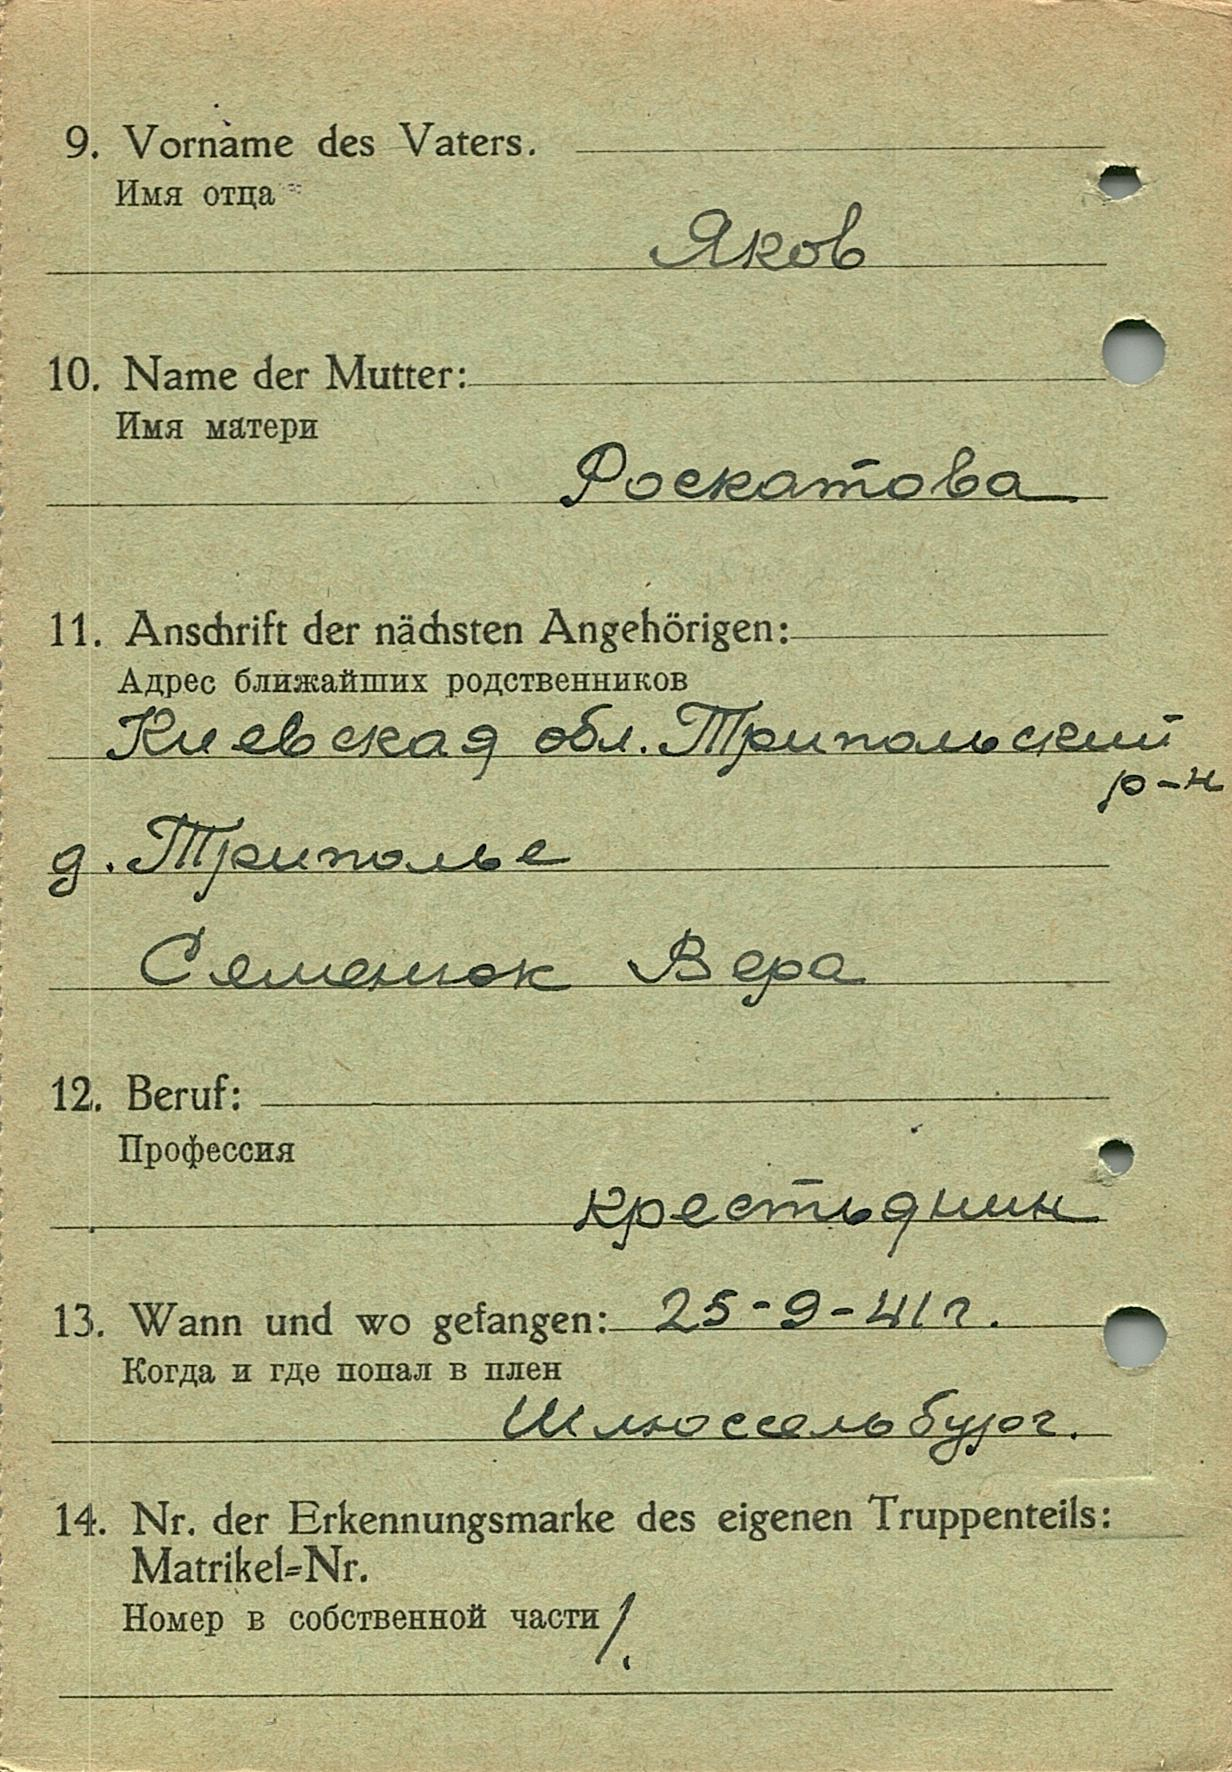 9. Vorname des Vaters.
Имя отца
Яков
10. Name der Mutter:
Имя матери
Роскатова
11. Anschrift der nächsten Angehörigen:
Адрес ближайших родственников
Киевская обл. Трипольский
р-н
д. Триполье
Семенюк Вера
12. Beruf:
Профессия
крестьянин
13. Wann und wo gefangen: 25-9-41 г.
Когда и где попал в плен
Шлюссельбург.
14. Nr. der Erkennungsmarke des eigenen Truppenteils:
Matrikel=Nr.
Номер в собственной части /.